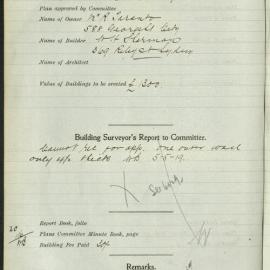 Plan approved by Committee
Name of Owner Mr R Taranto
588 George St City
Name of Builder W H Sherman
369 Riley St Sydney
Name of Architect
Value of Buildings to be erected £ 1300
Building Surveyor's Report to Committee.
Cannot rec for app. One outer wall
only 4½ thick WB 5-5-19.
Report Book, folio
Plans Committee Minute Book, page
Building Fee Paid
Remarks.